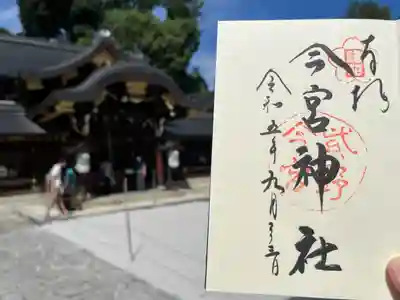 奉拝
今宮神社
令和五年九月三日